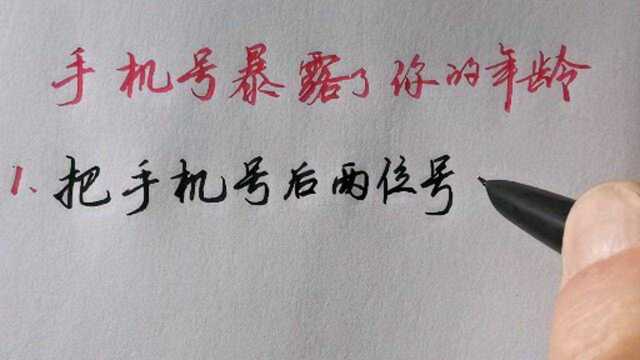 手机号暴露了你的年龄
1.把手机号后两位号